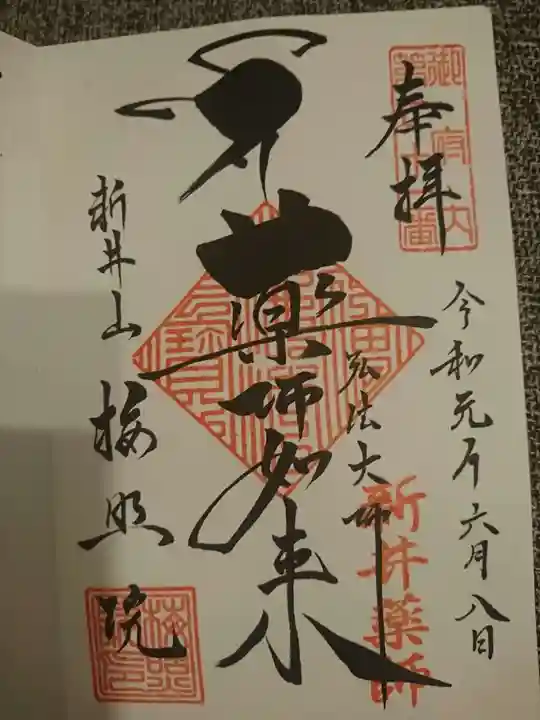 奉拝
令和元年六月八日
新井薬師
弘法大师
薬师如来
新井山 梅照院